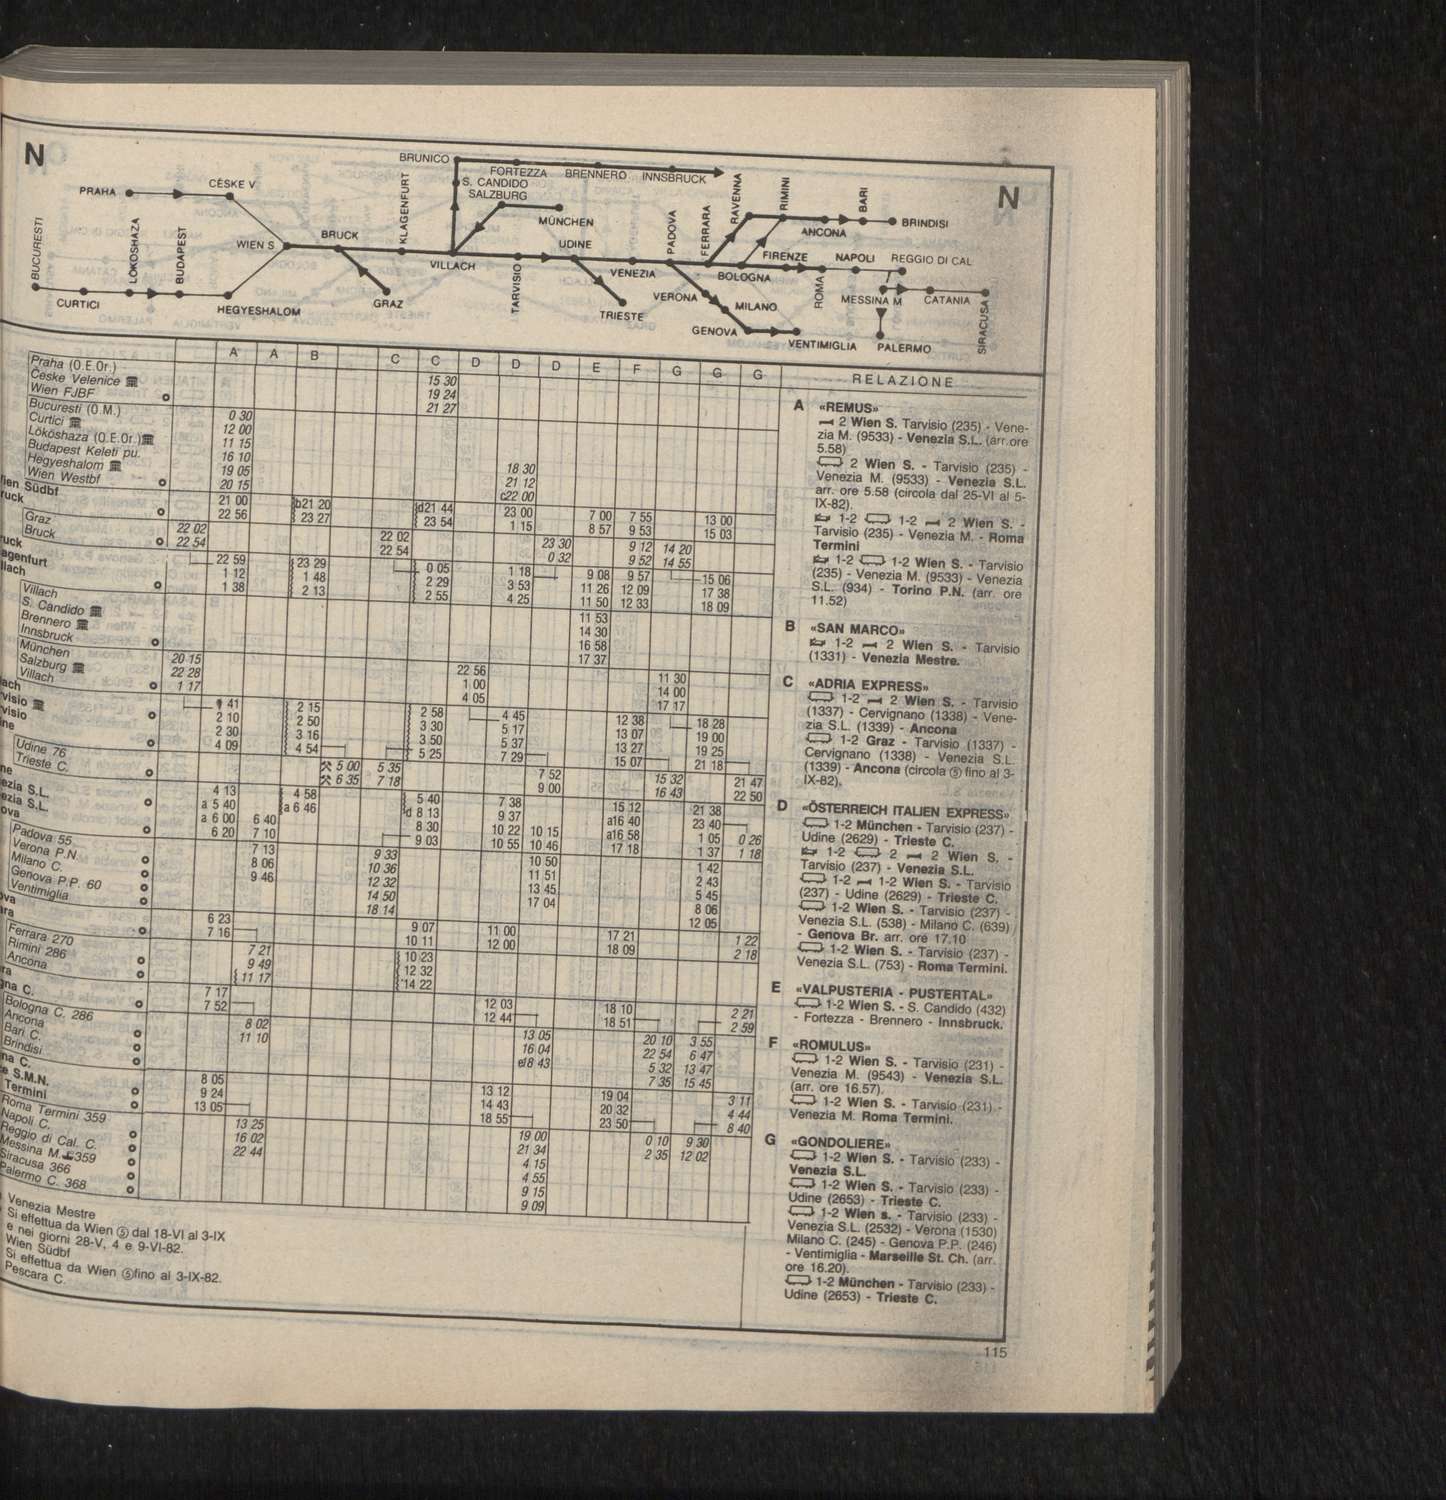 N
N
BRUNICO
FORTEZZA
BRENNERO
INNSBRUCK
S. CANDIDO
SALZBURG
MÜNCHEN
PRAHA
CĚSKE V
KLAGENFURT
RAVENNA
RIMINI
BARI
BRINDISI
ANCONA
BUCURESTI
LÖKÖSHAZA
BUDAPEST
WIEN S
BRUCK
VILLACH
UDINE
PADOVA
FERRARA
FIRENZE
NAPOLI
REGGIO DI CAL
BOLOGNA
VENEZIA
TARVISIO
TRIESTE
VERONA
MILANO
ROMA
MESSINA M
CATANIA
CURTICI
HEGYESHALOM
GRAZ
GENOVA
VENTIMIGLIA
PALERMO
SIRACUSA
A A B C C D D D E F G G G
RELAZIONE
Praha (O.E.Or.) 15 30
Česke Velenice 19 24
Wien FJBF 21 27
Bucuresti (O.M.) 0 30
Curtici 12 00
Lököshaza (O.E.Or.) 11 15
Budapest Keleti pu. 16 10 18 30
Hegyeshalom 19 05 21 12
Wien Westbf 20 15 c22 00
ien Südbf 21 00 b21 20 d21 44 23 00 7 00 7 55 13 00
ruck 22 56 23 27 23 54 1 15 8 57 9 53 15 03
Graz 22 02 22 02 23 30 9 12 14 20
Bruck 22 54 22 54 0 32 9 52 14 55
uck 22 59 23 29 0 05 1 18 9 08 9 57 15 06
agenfurt 1 12 1 48 2 29 3 53 11 26 12 09 17 38
llach 1 38 2 13 2 55 4 25 11 50 12 33 18 09
Villach 11 53
S. Candido 14 30
Brennero 16 58
Innsbruck 17 37
München 20 15 22 56 11 30
Salzburg 22 28 1 00 14 00
Villach 1 17 4 05 17 17
lach 41 2 15 2 58 4 45 12 38 18 28
rvisio 2 10 2 50 3 30 5 17 13 07 19 00
rvisio 2 30 3 16 3 50 5 37 13 27 19 25
ine 4 09 4 54 5 25 7 29 15 07 21 18
Udine 76 5 00 5 35 7 52 15 32 21 47
Trieste C. 6 35 7 18 9 00 16 43 22 50
ne 4 13 4 58 5 40 7 38 15 12 21 38
ezia S.L. a 5 40 a 6 46 d 8 13 9 37 a16 40 23 40
ezia S.L. a 6 00 6 40 8 30 10 22 10 15 a16 58 1 05 0 26
ova 6 20 7 10 9 03 10 55 10 46 17 18 1 37 1 18
Padova 55 7 13 9 33 10 50 1 42
Verona P.N. 8 06 10 36 11 51 2 43
Milano C. 9 46 12 32 13 45 5 45
Genova P.P. 60 14 50 17 04 8 06
Ventimiglia 18 14 12 05
ova 6 23 9 07 11 00 17 21 1 22
ara 7 16 10 11 12 00 18 09 2 18
Ferrara 270 7 21 10 23
Rimini 286 9 49 12 32
Ancona 11 17 14 22
ara 7 17 12 03 18 10 2 21
gna C. 7 52 12 44 18 51 2 59
Bologna C. 286 8 02 13 05 20 10 3 55
Ancona 11 10 16 04 22 54 6 47
Bari C. e18 43 5 32 13 47
Brindisi 7 35 15 45
na C. 8 05 13 12 19 04 3 11
e S.M.N. 9 24 14 43 20 32 4 44
Termini 13 05 18 55 23 50 8 40
Roma Termini 359 13 25 19 00 0 10 9 30
Napoli C. 16 02 21 34 2 35 12 02
Reggio di Cal. C. 22 44 4 15
Messina M. 359 4 55
Siracusa 366 9 15
Palermo C. 368 9 09
Venezia Mestre
Si effettua da Wien ⑤ dal 18-VI al 3-IX
e nei giorni 28-V, 4 e 9-VI-82.
Wien Südbf
Si effettua da Wien ⑤ fino al 3-IX-82.
Pescara C.
A «REMUS»
2 Wien S. Tarvisio (235) - Vene-
zia M. (9533) - Venezia S.L. (arr.ore
5.58)
2 Wien S. - Tarvisio (235) -
Venezia M. (9533) - Venezia S.L.
arr. ore 5.58 (circola dal 25-VI al 5-
IX-82).
1-2 1-2 2 Wien S. -
Tarvisio (235) - Venezia M. - Roma
Termini
1-2 1-2 Wien S. - Tarvisio
(235) - Venezia M. (9533) - Venezia
S.L. (934) - Torino P.N. (arr. ore
11.52)
B «SAN MARCO»
1-2 2 Wien S. - Tarvisio
(1331) - Venezia Mestre.
C «ADRIA EXPRESS»
1-2 2 Wien S. - Tarvisio
(1337) - Cervignano (1338) - Vene-
zia S.L. (1339) - Ancona
1-2 Graz - Tarvisio (1337) -
Cervignano (1338) - Venezia S.L.
(1339) - Ancona (circola ⑤ fino al 3-
IX-82).
D «ÖSTERREICH ITALIEN EXPRESS»
1-2 München - Tarvisio (237) -
Udine (2629) - Trieste C.
1-2 2 2 Wien S. -
Tarvisio (237) - Venezia S.L.
1-2 1-2 Wien S. - Tarvisio
(237) - Udine (2629) - Trieste C.
1-2 Wien S. - Tarvisio (237) -
Venezia S.L. (538) - Milano C. (639)
- Genova Br. arr. ore 17.10
1-2 Wien S. - Tarvisio (237) -
Venezia S.L. (753) - Roma Termini.
E «VALPUSTERIA - PUSTERTAL»
1-2 Wien S. - S. Candido (432)
- Fortezza - Brennero - Innsbruck.
F «ROMULUS»
1-2 Wien S. - Tarvisio (231) -
Venezia M. (9543) - Venezia S.L.
(arr. ore 16.57).
1-2 Wien S. - Tarvisio (231) -
Venezia M. Roma Termini.
G «GONDOLIERE»
1-2 Wien S. - Tarvisio (233) -
Venezia S.L.
1-2 Wien S. - Tarvisio (233) -
Udine (2653) - Trieste C.
1-2 Wien s. - Tarvisio (233) -
Venezia S.L. (2532) - Verona (1530)
Milano C. (245) - Genova P.P. (246)
- Ventimiglia - Marseille St. Ch. (arr.
ore 16.20).
1-2 München - Tarvisio (233) -
Udine (2653) - Trieste C.
115